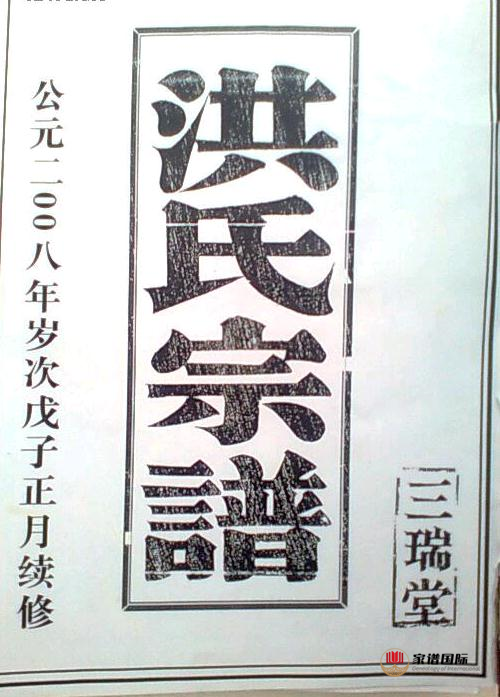 洪氏宗譜
公元二00八年岁次戊子正月续修
三瑞堂
家谱国际